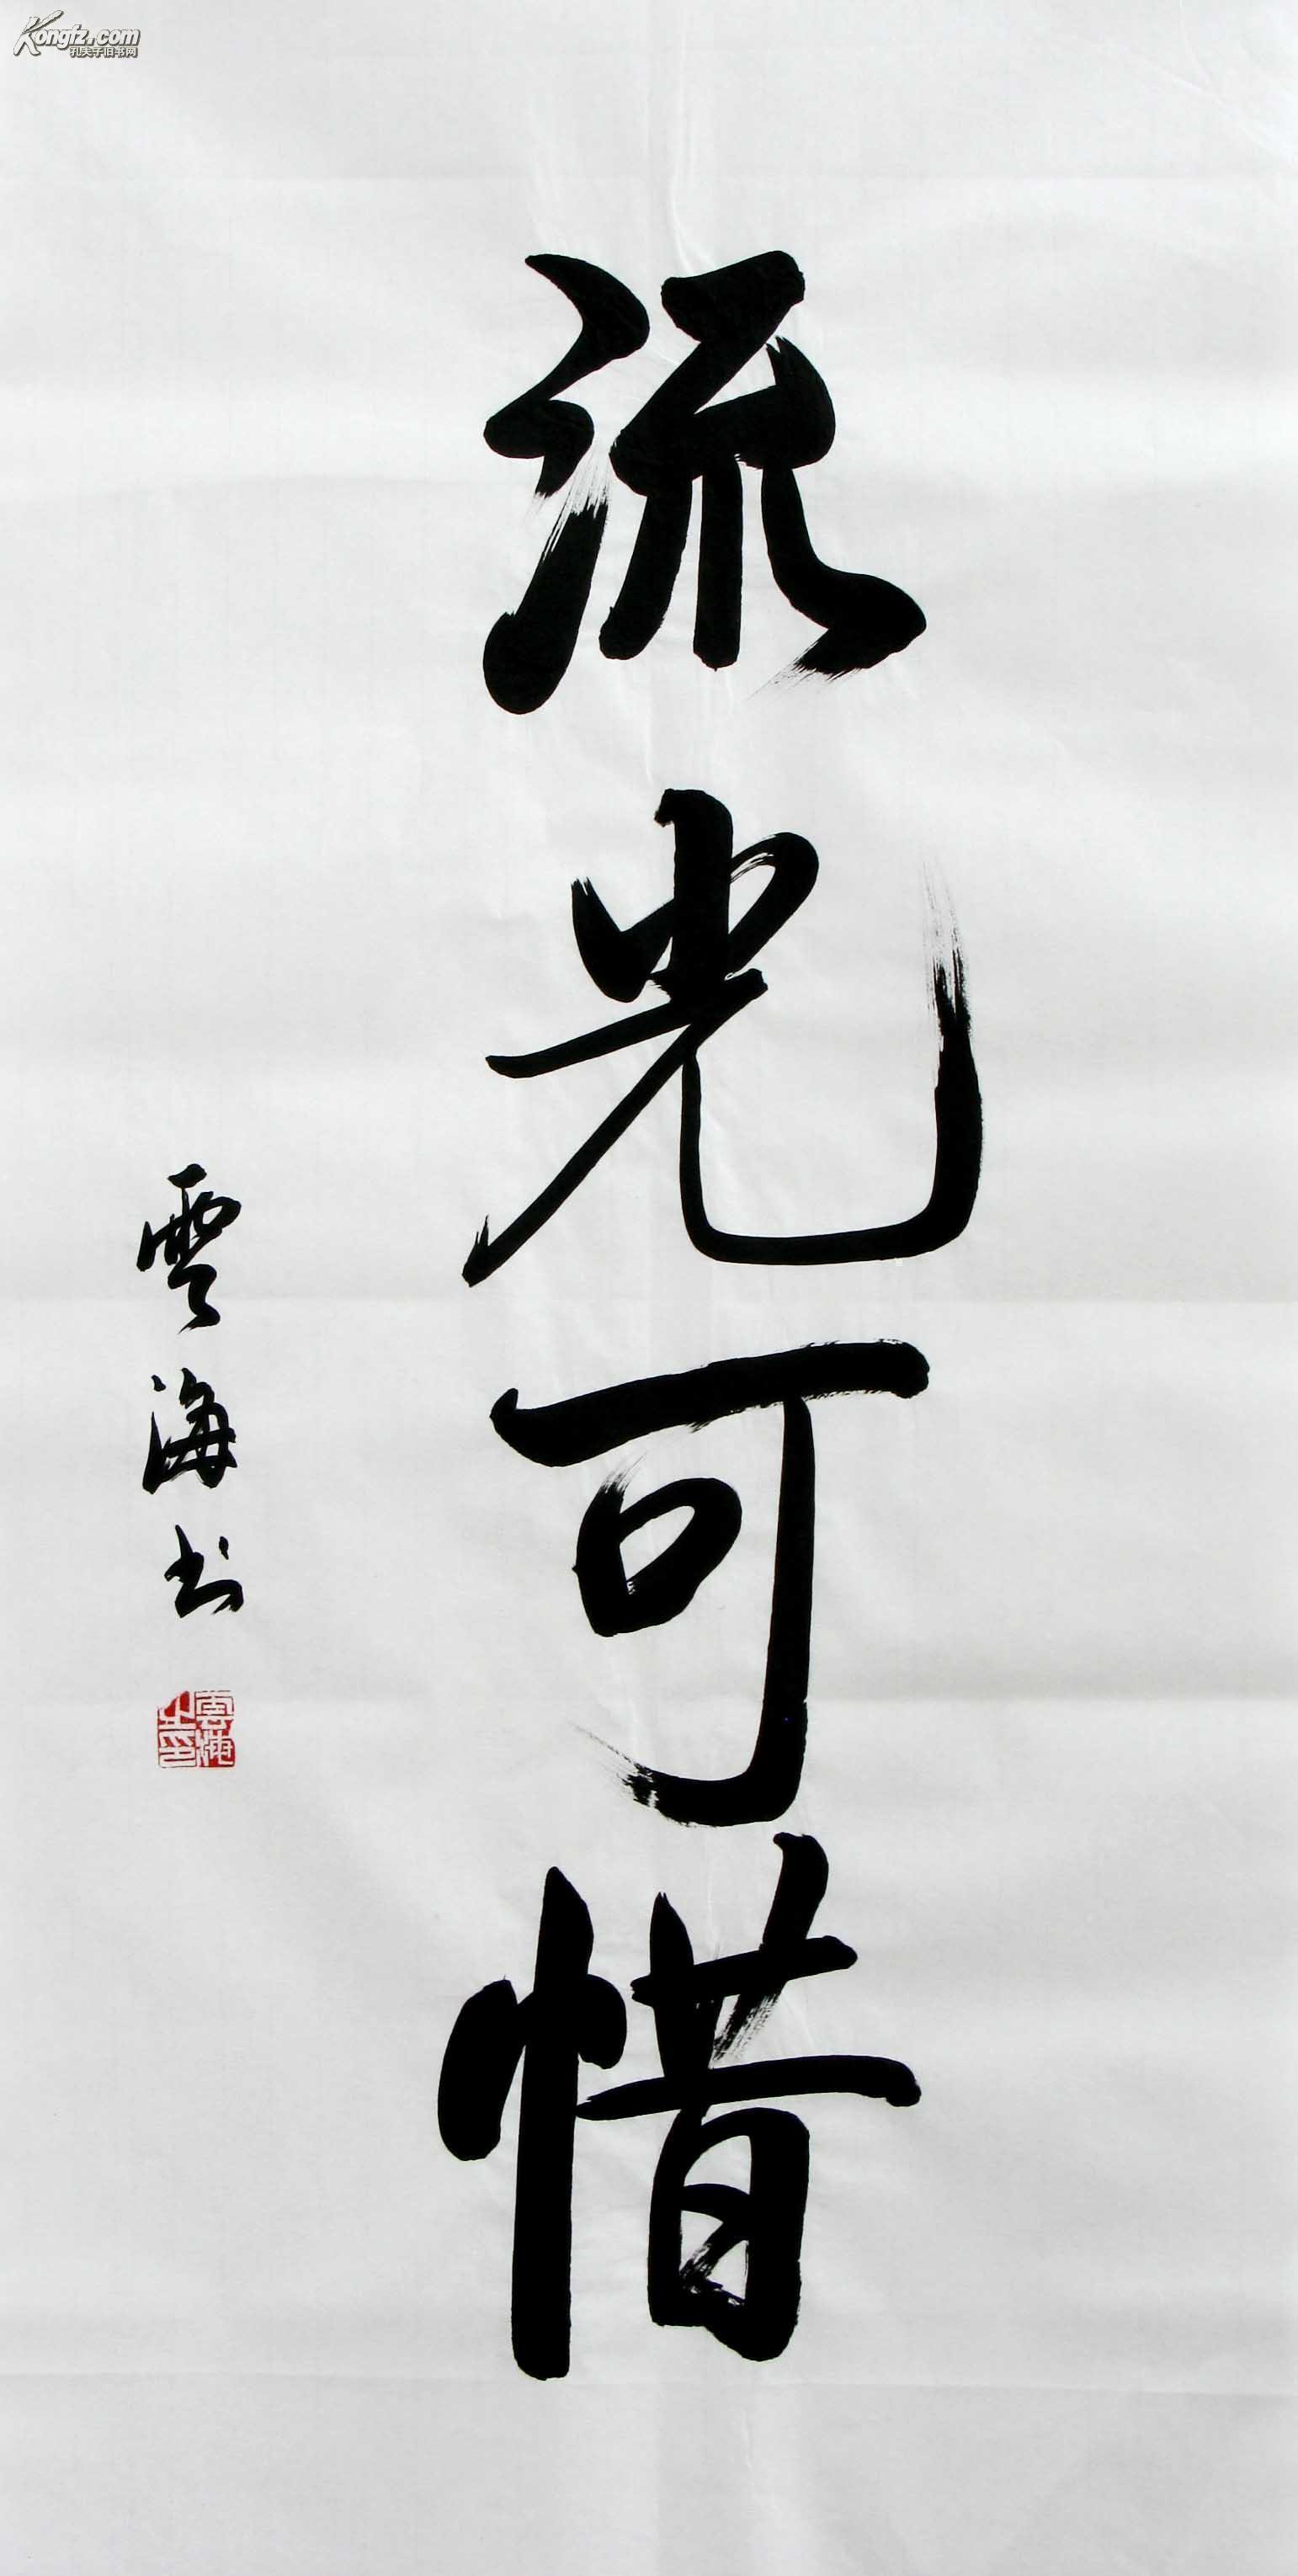 Kongfz.com
孔夫子旧书网
流光可惜
雲海书
雲海之印